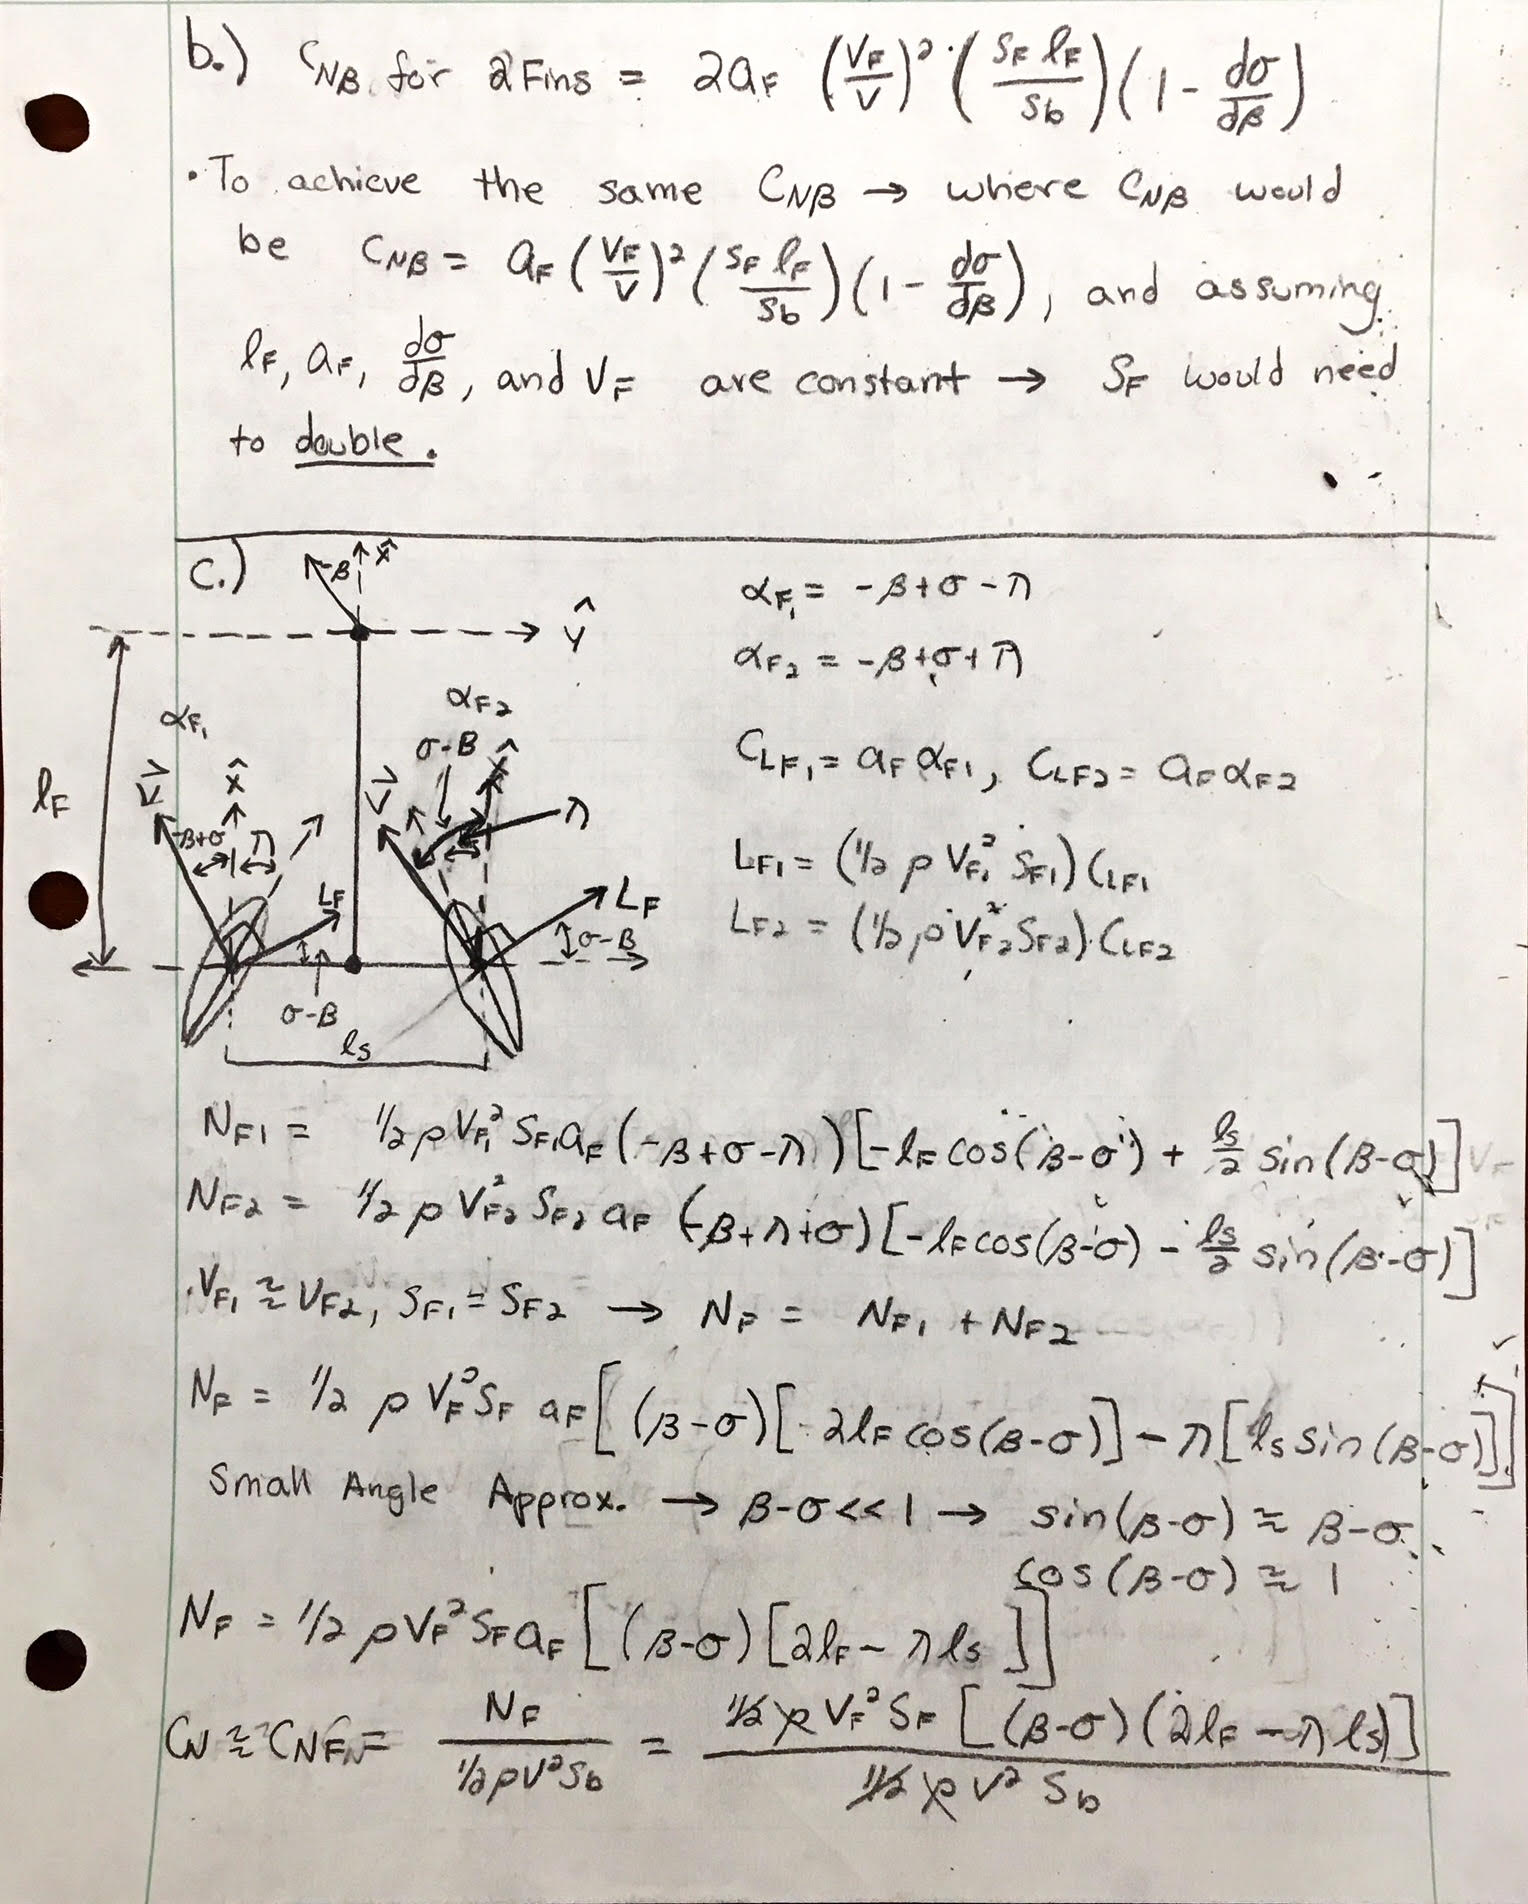 b.) CNβ for 2 Fins = 2aF (VF/V)² · (SF lF / Sb)(1 - dσ/dβ)
· To achieve the same CNβ → where CNβ would
be CNβ = aF (VF/V)² (SF lF / Sb)(1 - dσ/dβ), and assuming
lF, aF, dσ/dβ, and VF are constant → SF would need
to double.
c.)
-β x̂
ŷ
αF1 = -β+σ-Λ
αF2 = -β+σ+Λ
CLF1 = aF αF1, CLF2 = aF αF2
LF1 = (1/2 ρ VF1² SF1) CLF1
LF2 = (1/2 ρ VF2² SF2) · CLF2
lF
αF1
V⃗
x̂
-β+σ
Λ
LF
σ-B
αF2
σ-B
x̂
V⃗
Λ
LF
σ-B
ls
NF1 = 1/2 ρ VF1² SF1 aF (-β+σ-Λ)[-lF cos(β-σ) + ls/2 sin(β-σ)]
NF2 = 1/2 ρ VF2² SF2 aF (-β+Λ+σ)[-lF cos(β-σ) - ls/2 sin(β-σ)]
· VF1 ≈ VF2, SF1 = SF2 → NF = NF1 + NF2
NF = 1/2 ρ VF² SF aF [(β-σ)[2lF cos(β-σ)] - Λ[ls sin(β-σ)]]
Small Angle Approx. → β-σ << 1 → sin(β-σ) ≈ β-σ
cos(β-σ) ≈ 1
NF = 1/2 ρ VF² SF aF [(β-σ)[2lF - Λ ls]]
CN ≈ CNFN = NF / 1/2 ρV²Sb = 1/2 ρ VF² SF [(β-σ)(2lF - Λ ls)] / 1/2 ρ V² Sb